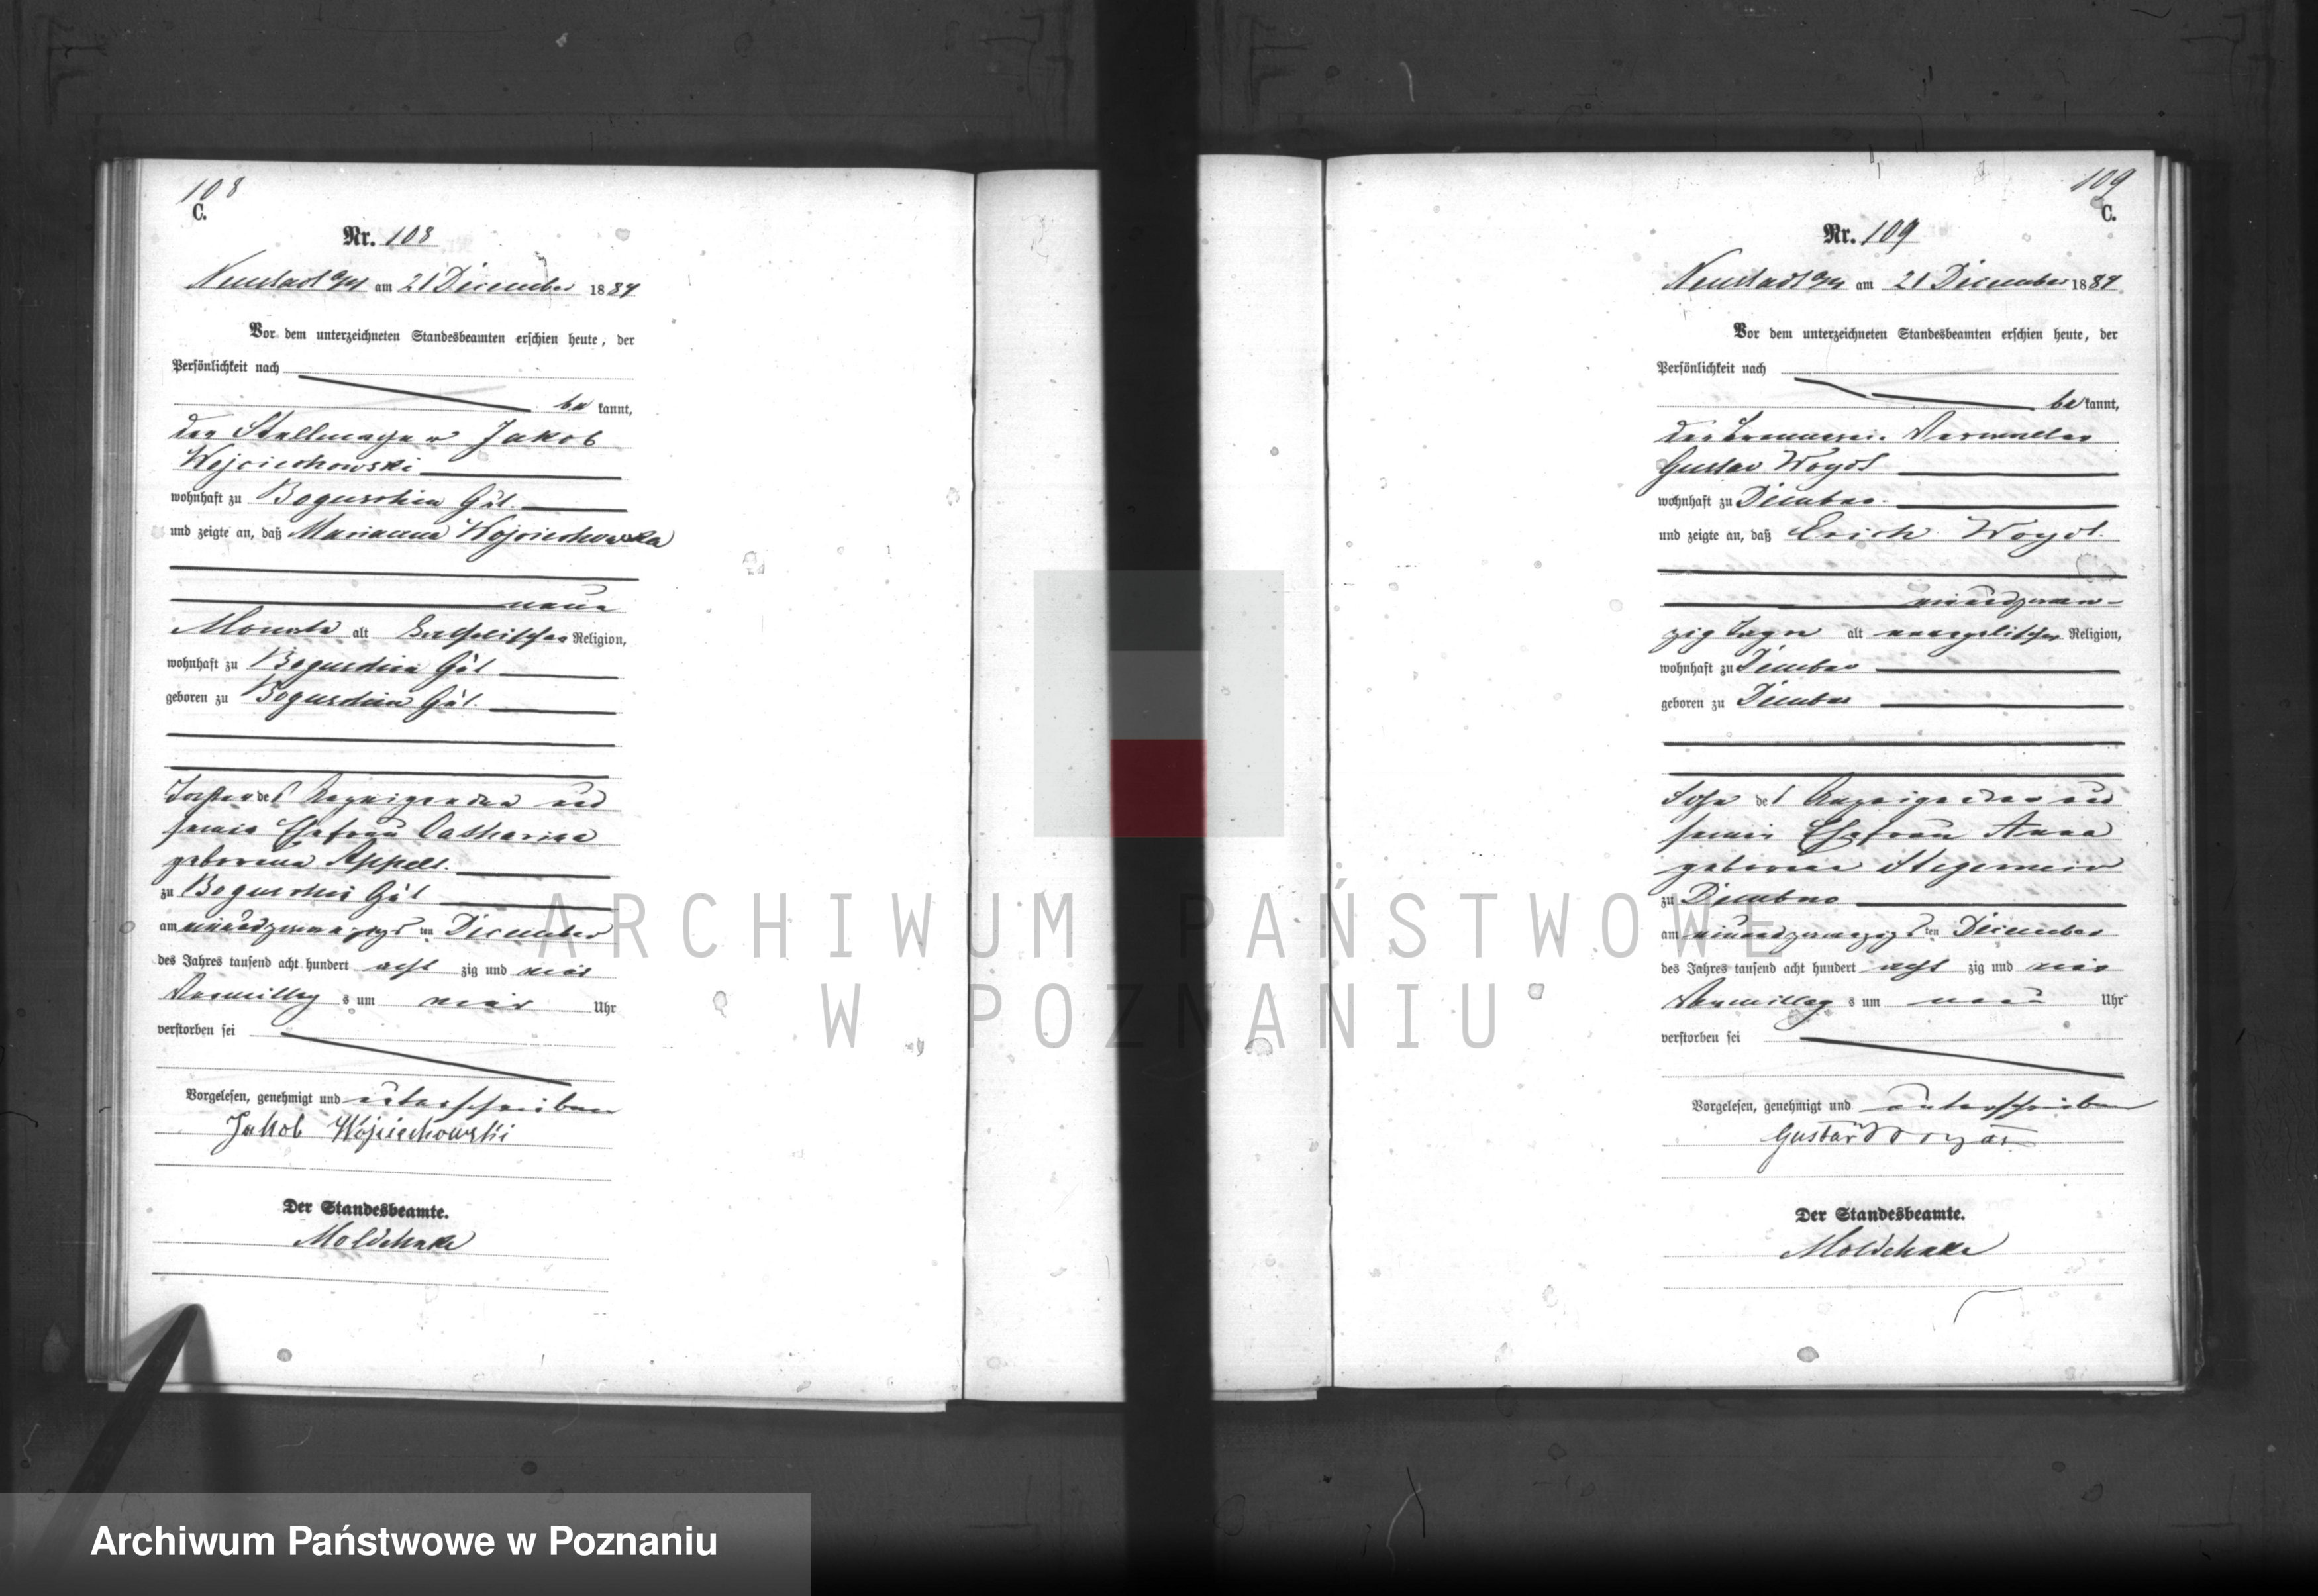 108
C.
Nr. 108
Neustadt a/W am 21 December 1884
Vor dem unterzeichneten Standesbeamten erschien heute, der
Persönlichkeit nach
be kannt,
der Stellmacher Jakob
Wojciechowski
wohnhaft zu Boguschin Gut.
und zeigte an, daß Marianna Wojciechowska
neun
Monate alt katholischer Religion,
wohnhaft zu Boguschin Gut
geboren zu Boguschin Gut.
Tochter des Anzeigenden und
seiner Ehefrau Catharina
geborene Appelt.
zu Boguschin Gut
am einundzwanzigs ten December
des Jahres tausend acht hundert acht zig und vier
Vormittag s um vier Uhr
verstorben sei
Vorgelesen, genehmigt und unterschrieben
Jakob Wojciechowski
Der Standesbeamte.
Moldehnke
109
C.
Nr. 109
Neustadt a/W am 21 December 1884.
Vor dem unterzeichneten Standesbeamten erschien heute, der
Persönlichkeit nach
be kannt,
der Brennerei Verwalter
Gustav Woydt
wohnhaft zu Dembno.
und zeigte an, daß Erich Woydt.
einundzwan-
zig Tage alt evangelischer Religion,
wohnhaft zu Dembno
geboren zu Dembno
Sohn des Anzeigenden und
seiner Ehefrau Anna
geborene Stegemeier
zu Dembno
am einundzwanzigs ten December
des Jahres tausend acht hundert acht zig und vier
Vormittag s um neun Uhr
verstorben sei
Vorgelesen, genehmigt und unterschrieben
Gustav Woydt.
Der Standesbeamte.
Moldehnke
ARCHIWUM PAŃSTWOWE
W POZNANIU
Archiwum Państwowe w Poznaniu